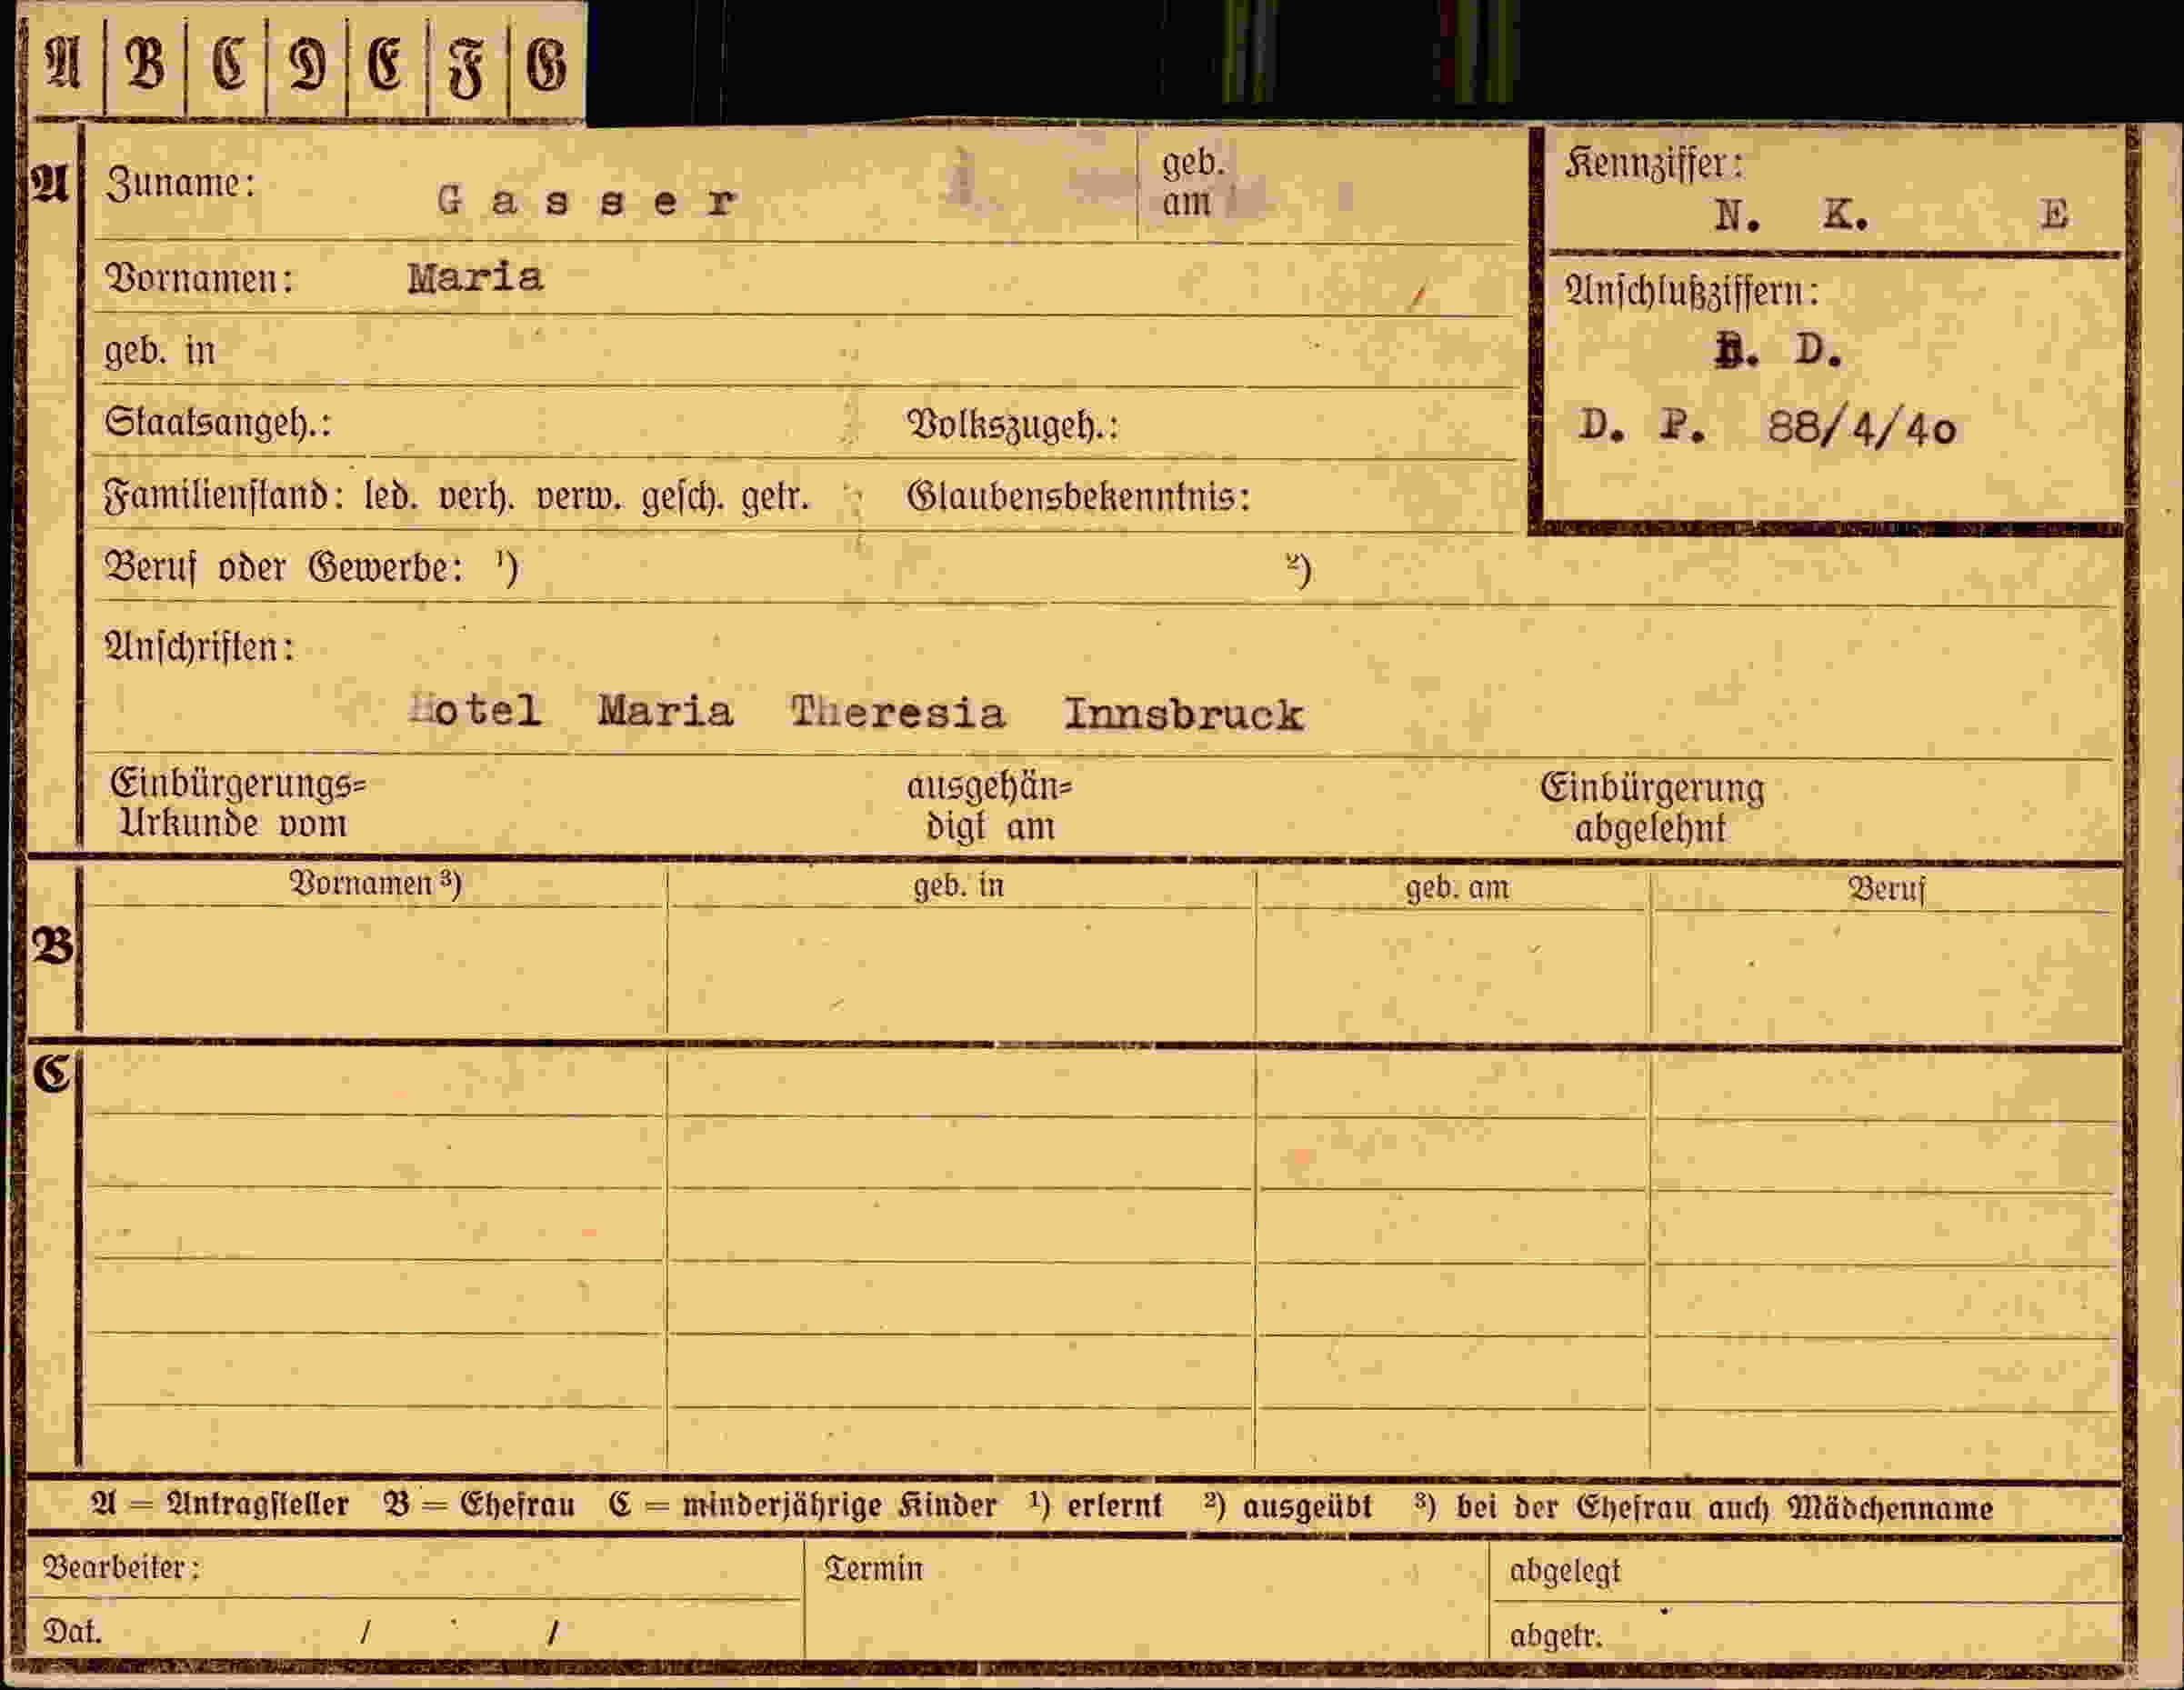 A B C D E F G
A Zuname: Gasser geb. am
Kennziffer:
N. K. E
Vornamen: Maria
Anschlußziffern:
D.
geb. in
D. P. 88/4/40
Staatsangeh.: Volkszugeh.:
Familienstand: led. verh. verw. gesch. getr. Glaubensbekenntnis:
Beruf oder Gewerbe: ¹) ²)
Anschriften:
Hotel Maria Theresia Innsbruck
Einbürgerungs= ausgehän= Einbürgerung
Urkunde vom digt am abgelehnt
Vornamen ³) geb. in geb. am Beruf
B
C
A = Antragsteller B = Ehefrau C = minderjährige Kinder ¹) erlernt ²) ausgeübt ³) bei der Ehefrau auch Mädchenname
Bearbeiter: Termin abgelegt
Dat. / / abgetr.